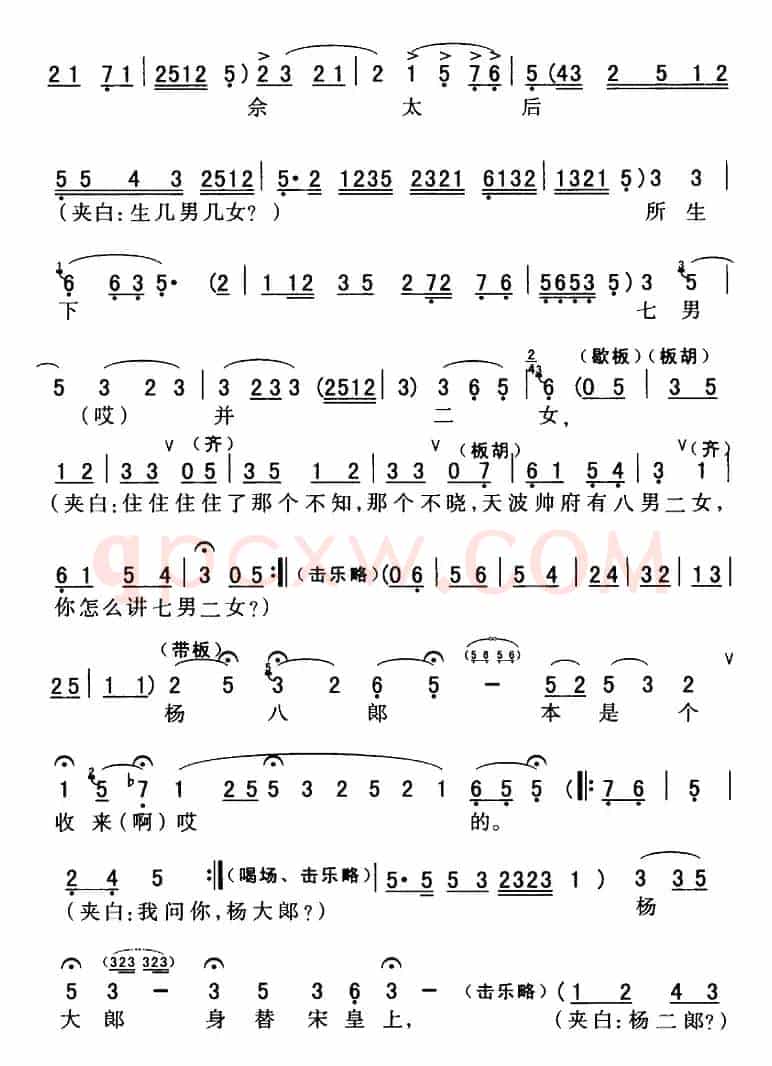 21 71 | 2512 5) 23 21 | 2 1 5 76 | 5 (43 2 5 12
佘 太 后
55 43 2512 | 5·2 1235 2321 6132 | 1321 5) 3 3 |
(夹白:生几男几女?) 所 生
6 63 5· (2 | 1 12 35 272 76 | 5653 5) 3 5 |
下 七 男
5 3 23 | 3 233 (2512 | 3) 365 | 6 (05 | 35
(歇板)(板胡)
(哎) 并 二 女,
(齐) (板胡) (齐)
12 | 33 05 | 35 12 | 33 07 | 61 54 | 3 1 |
(夹白:住住住住了那个不知,那个不晓,天波帅府有八男二女,
61 54 | 3 05 :‖ (击乐略) (06 | 56 | 54 | 24 | 32 | 13 |
你怎么讲七男二女?)
(带板)
25 | 11) 2 5 3 2 6 5 − 52 5 3 2
杨 八 郎 本 是 个
1 5 ♭7 1 255 3 2 5 2 1 6 5 (‖: 76 5 |
收 来(啊)哎 的。
2 4 5 :‖ (喝场、击乐略) | 5·5 53 2323 1 ) 3 35
(夹白:我问你,杨大郎?) 杨
5 3 − 3 5 3 6 3 − (击乐略) (1 2 43
大 郎 身 替 宋 皇 上, (夹白:杨二郎?)
qpcxw.COM